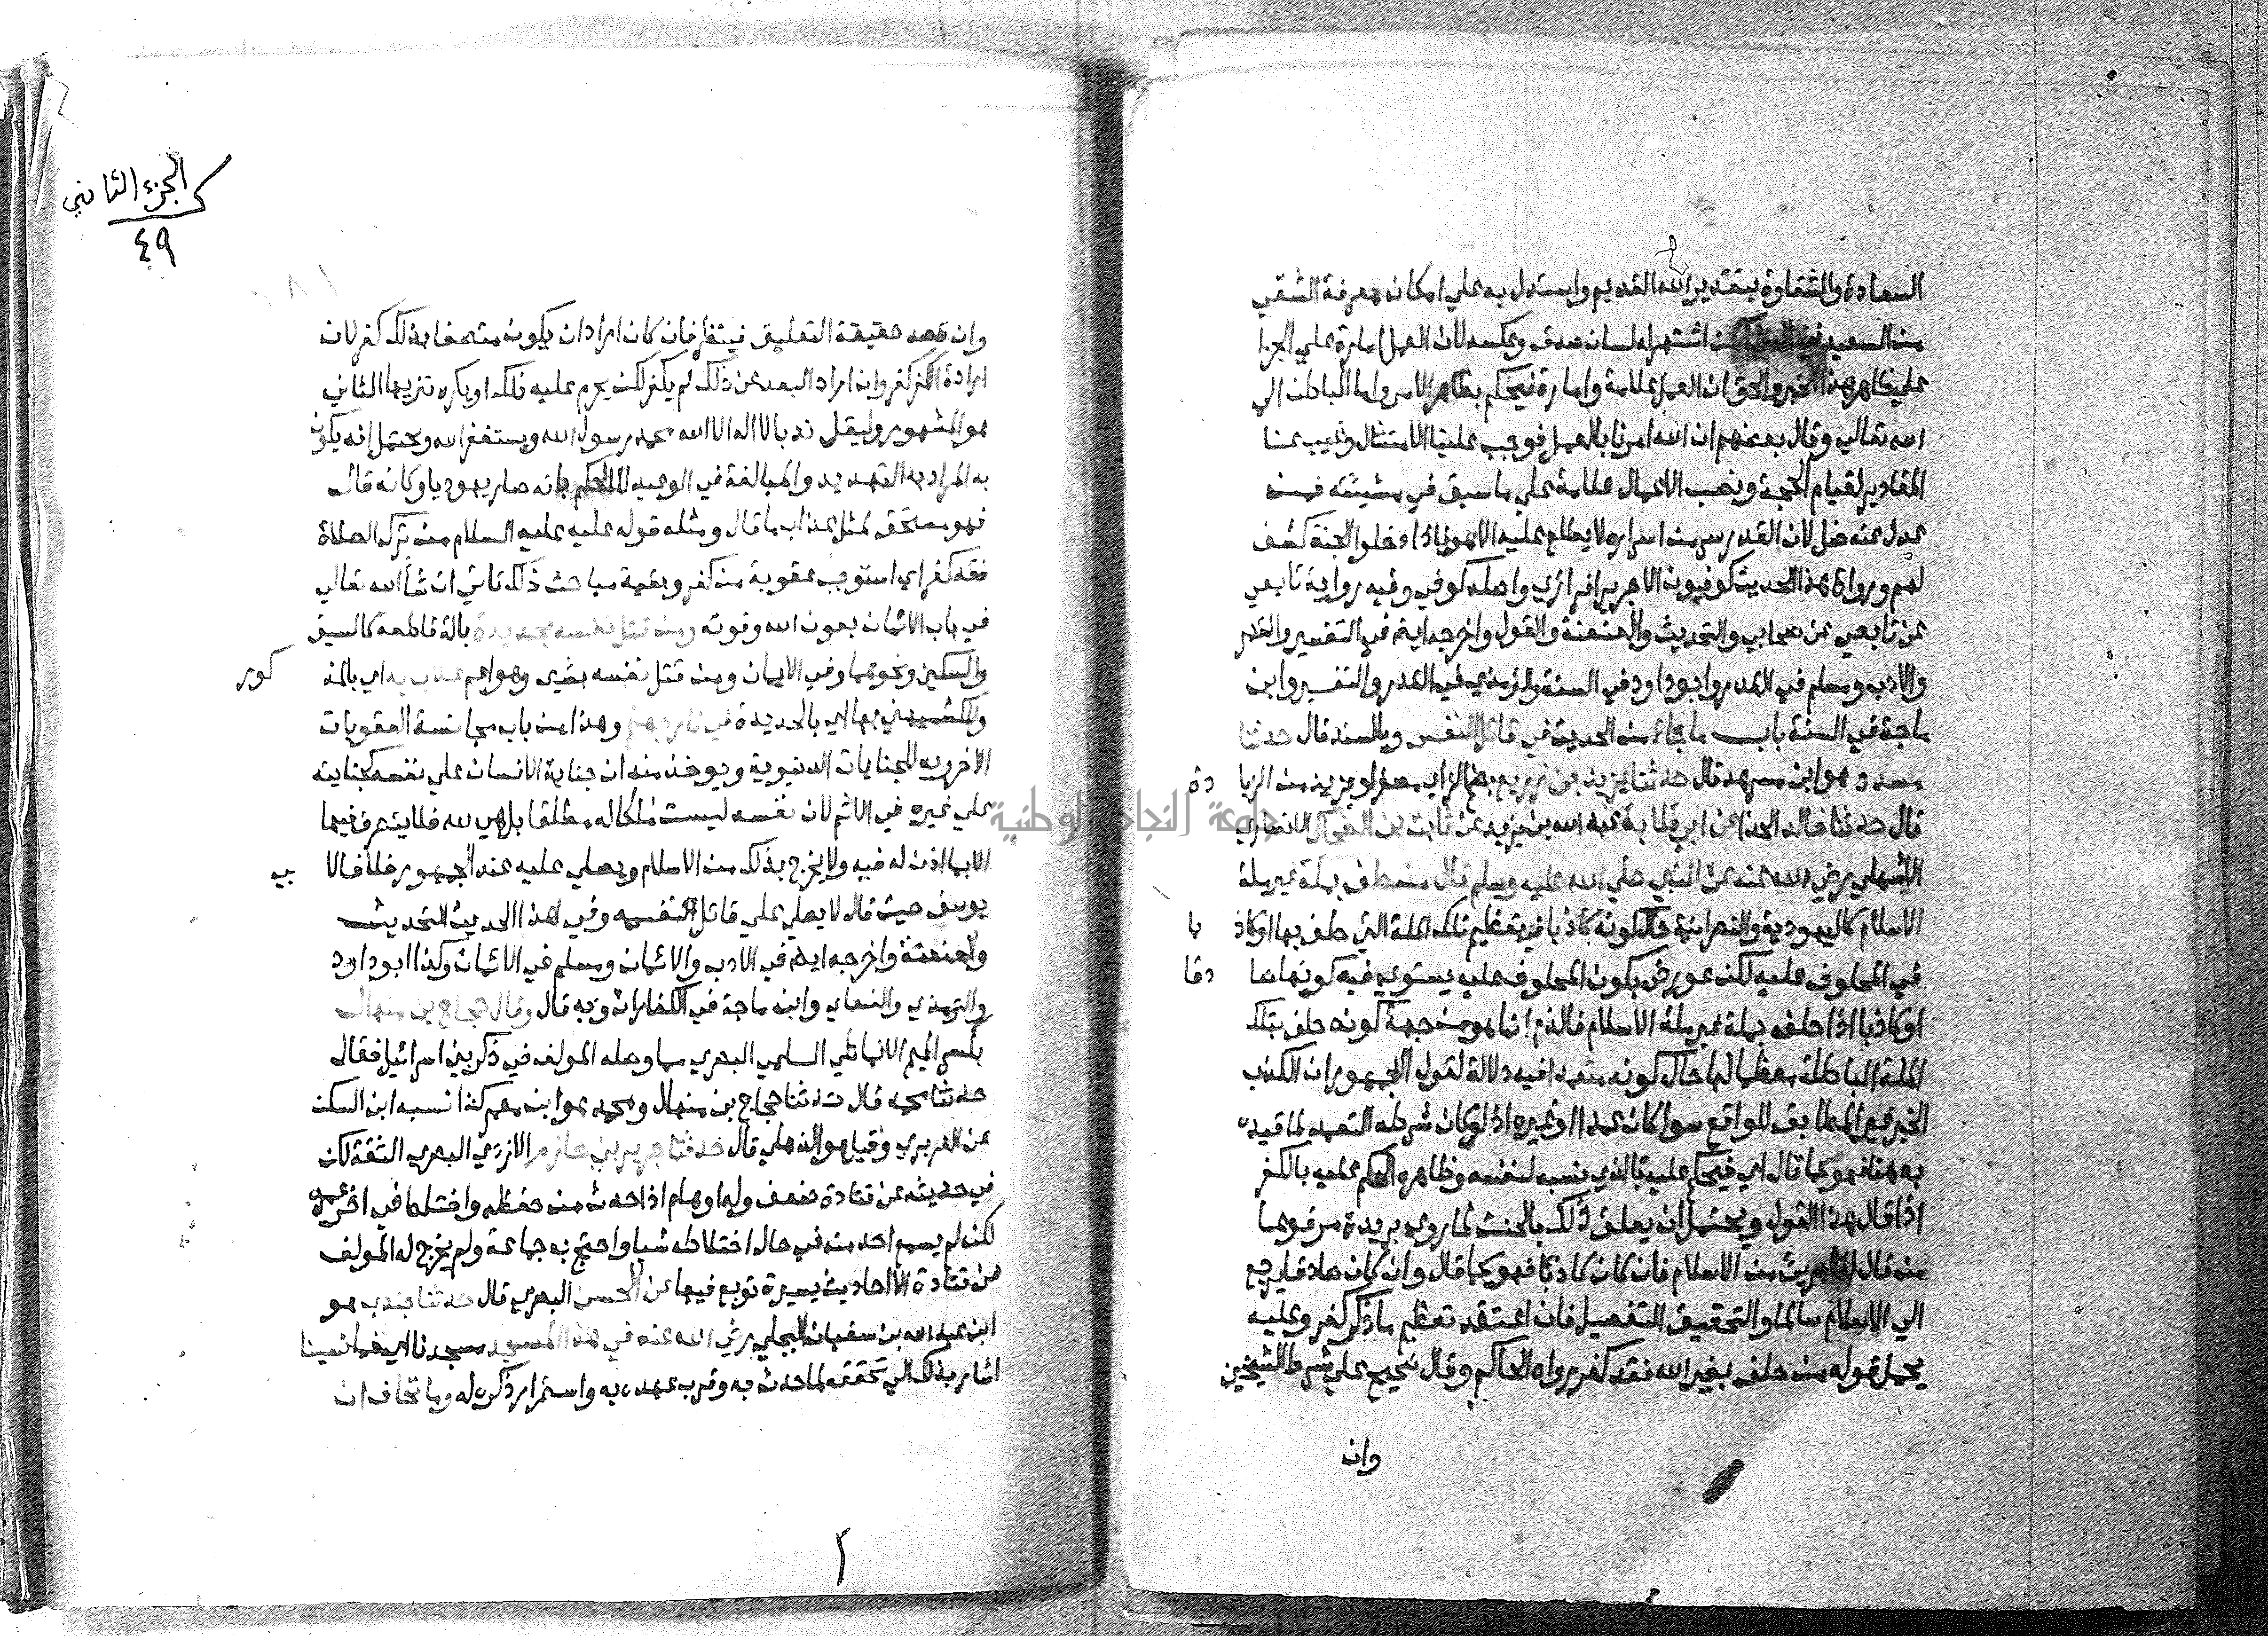 السعادة والشقاوة بتقدير الله القديم واستدل به علي امكان معرفة الشقي
من السعيد في الدنيا كمن اشتهر له لسان صدق وعكسه لان العمل امارة علي الجزا
علي ظاهر هذا الخبر والحق ان العمل علامة وامارة فيحكم بظاهر الامر وامر الباطن الي
الله تعالي وقال بعضهم ان الله امرنا بالعمل فوجب علينا الامتثال وغيب عنا
المقادير لقيام الحجة ونصب الاعمال علامة علي ما سبق في مشيئته فمن
عدل عنه ضل لان القدر سر من اسراره لا يطلع عليه الا هو فاذا دخلوا الجنة كشف
لهم ورواة هذا الحديث كوفيون الا جريرا فرازي واصله كوفي وفيه رواية تابعي
عن تابعي عن صحابي والتحديث والعنعنة والقول واخرجه ايضا في التفسير والقدر
والادب ومسلم في القدر وابو داود في السنة والترمذي في القدر والتفسير وابن
ماجة في السنة باب ما جاء من الحديث في قاتل النفس وبالسند قال حدثنا
مسدد هو ابن مسرهد قال حدثنا يزيد بن زريع بضم الزاي مصغرا ويزيد من الزيا دة
قال حدثنا خالد الحذا عن ابي قلابة عبد الله بن يزيد عن ثابت بن الضحاك الانصاري
الاشهلي رضي الله عنه عن النبي صلي الله عليه وسلم قال من حلف بملة غير ملة
الاسلام كاليهودية والنصرانية حال كونه كاذبا في تعظيم تلك الملة التي حلف بها او كاذ با
في المحلوف عليه لكن عورض بكون المحلوف عليه يستوي فيه كونه صا دقا
او كاذبا اذا حلف بملة غير ملة الاسلام فالذم انما هو من جهة كونه حلف بتلك
الملة الباطلة معظما لها حال كونه متعمدا فيه دلالة لقول الجمهور ان الكذب
الخبر غير المطابق للواقع سوا كان عمدا او غيره اذ لو كان شرطه التعمد لما قيده
به هنا فهو كما قال اي فيحكم عليه بالذي نسبه لنفسه وظاهره الحكم عليه بالكفر
اذا قال هذا القول ويحتمل ان يعلق ذلك بالحنث لما روي بريدة مرفوعا
من قال انا بريئ من الاسلام فان كان كاذبا فهو كما قال وان كان صادقا يرجع
الي الاسلام سالما والتحقيق التفصيل فان اعتقد تعظيم ما ذكر كفر وعليه
يحمل قوله من حلف بغير الله فقد كفر رواه الحاكم وقال صحيح علي شرط الشيخين
وان
الجزء الثاني
٤٩
وان قصد حقيقة التعليق فينظر فان كان اراد ان يكون متصفا بذلك كفر لان
ارادة الكفر كفر وان اراد البعد عن ذلك لم يكفر لكن يحرم عليه ذلك او يكره تنزيها الثاني
هو المشهور وليقل ندبا لا اله الا الله محمد رسول الله ويستغفر الله ويحتمل انه يكون
به المراد به التهديد والمبالغة في الوعيد لا الحكم بانه صار يهوديا وكانه قال
فهو مستحق لمثل عذاب ما قال ومثله قوله عليه عليه السلام من ترك الصلاة
فقد كفر اي استوجب عقوبة من كفر وبقية مباحث ذلك تاتي ان شاالله تعالي
في باب الائمان بعون الله وقوته ومن قتل نفسه بحديدة بالة قاطعة كالسيف
والسكين ونحوهما وفي الايمان ومن قتل نفسه بشي وهو اعم عذب به اي بالمذ كور
وللكشميهني بها اي بالحديدة في نار جهنم وهذا من باب مجانسة العقوبات
الاخروية للجنايات الدنيوية ويوخذ منه ان جناية الانسان علي نفسه كجنايته
علي غيره في الاثم لان نفسه ليست ملكا له مطلقا بل هي لله فلا يتصرف فيها
الا بما اذن له فيه ولا يخرج بذلك من الاسلام ويصلي عليه عند الجمهور خلافا لا بي
يوسف حيث قال لا يصلي علي قاتل نفسه وفي هذا الحديث التحديث
والعنعنة واخرجه ايضا في الادب والائمان ومسلم في الائمان وكذا ابو داود
والترمذي والنساي وابن ماجة في الكفارات وبه قال وقال حجاج بن منهال
بكسر الميم الانماطي السلمي البصري مما وصله المولف في ذكر بني اسرائيل فقال
حدثنا محمد قال حدثنا حجاج بن منهال ومحمد هو ابن معمر كذا نسبه ابن السكن
عن الفربري وقيل هو الذهلي قال حدثنا جرير بن حازم الازدي البصري الثقة لكن
في حديثه عن قتادة ضعف وله اوهام اذا حدث من حفظه واختلط في اخر عمره
لكن لم يسمع احد منه في حال اختلاطه شيا واحتج به جماعة ولم يخرج له المولف
عن قتادة الا احاديث يسيرة توبع فيها عن الحسن البصري قال حدثنا جندب هو
ابن عبد الله بن سفيان البجلي رضي الله عنه في هذا المسجد مسجدنا اي فما نسينا
اشار بذلك الي تحققه لما حدث به وقرب عهده به واستمرار ذكره له وما نخاف ان
جامعة النجاح الوطنية